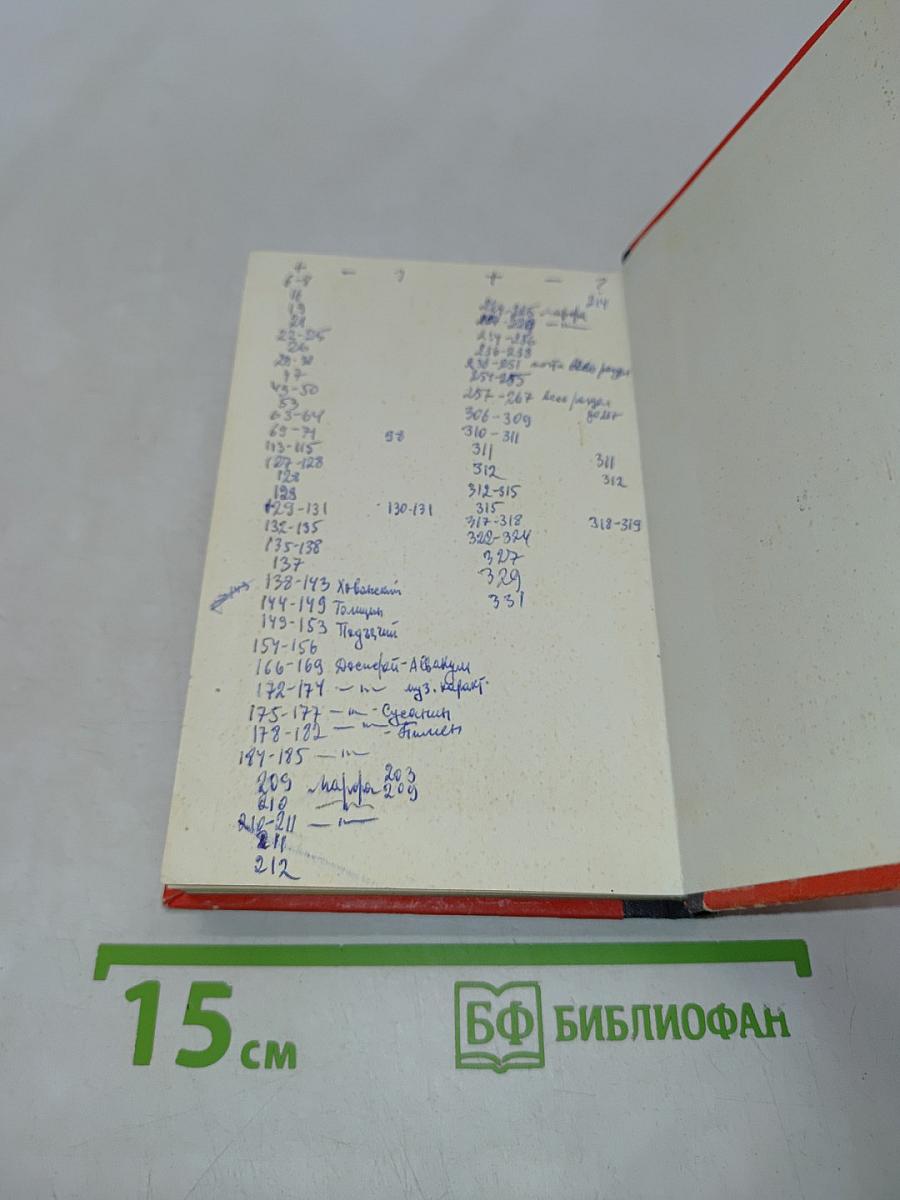 + – ?
6-8
11
19
21
22-25
26
28-32
47
49-50
53
63-64
69-71 98
113-115
127-128
128
129
129-131 130-131
132-135
135-138
137
138-143 Хованский
144-149 Голицын
149-153 Подъячий
154-156
166-169 Досифей-Аввакум
172-174 –"– муз. характ.
175-177 –"– Сусанин
178-182 –"– - Пимен
184-185 –"–
209 Марфа 203
210 –"– 209
210-211 –"–
211
212
+ – ?
214
Марфа
–"–
234-236
236-238
238-251 почти весь раздел
254-255
257-267 весь раздел
306-309
310-311
311 311
312 312
312-315
315
317-318 318-319
322-324
327
329
331
15 см
БФ БИБЛИОФАН